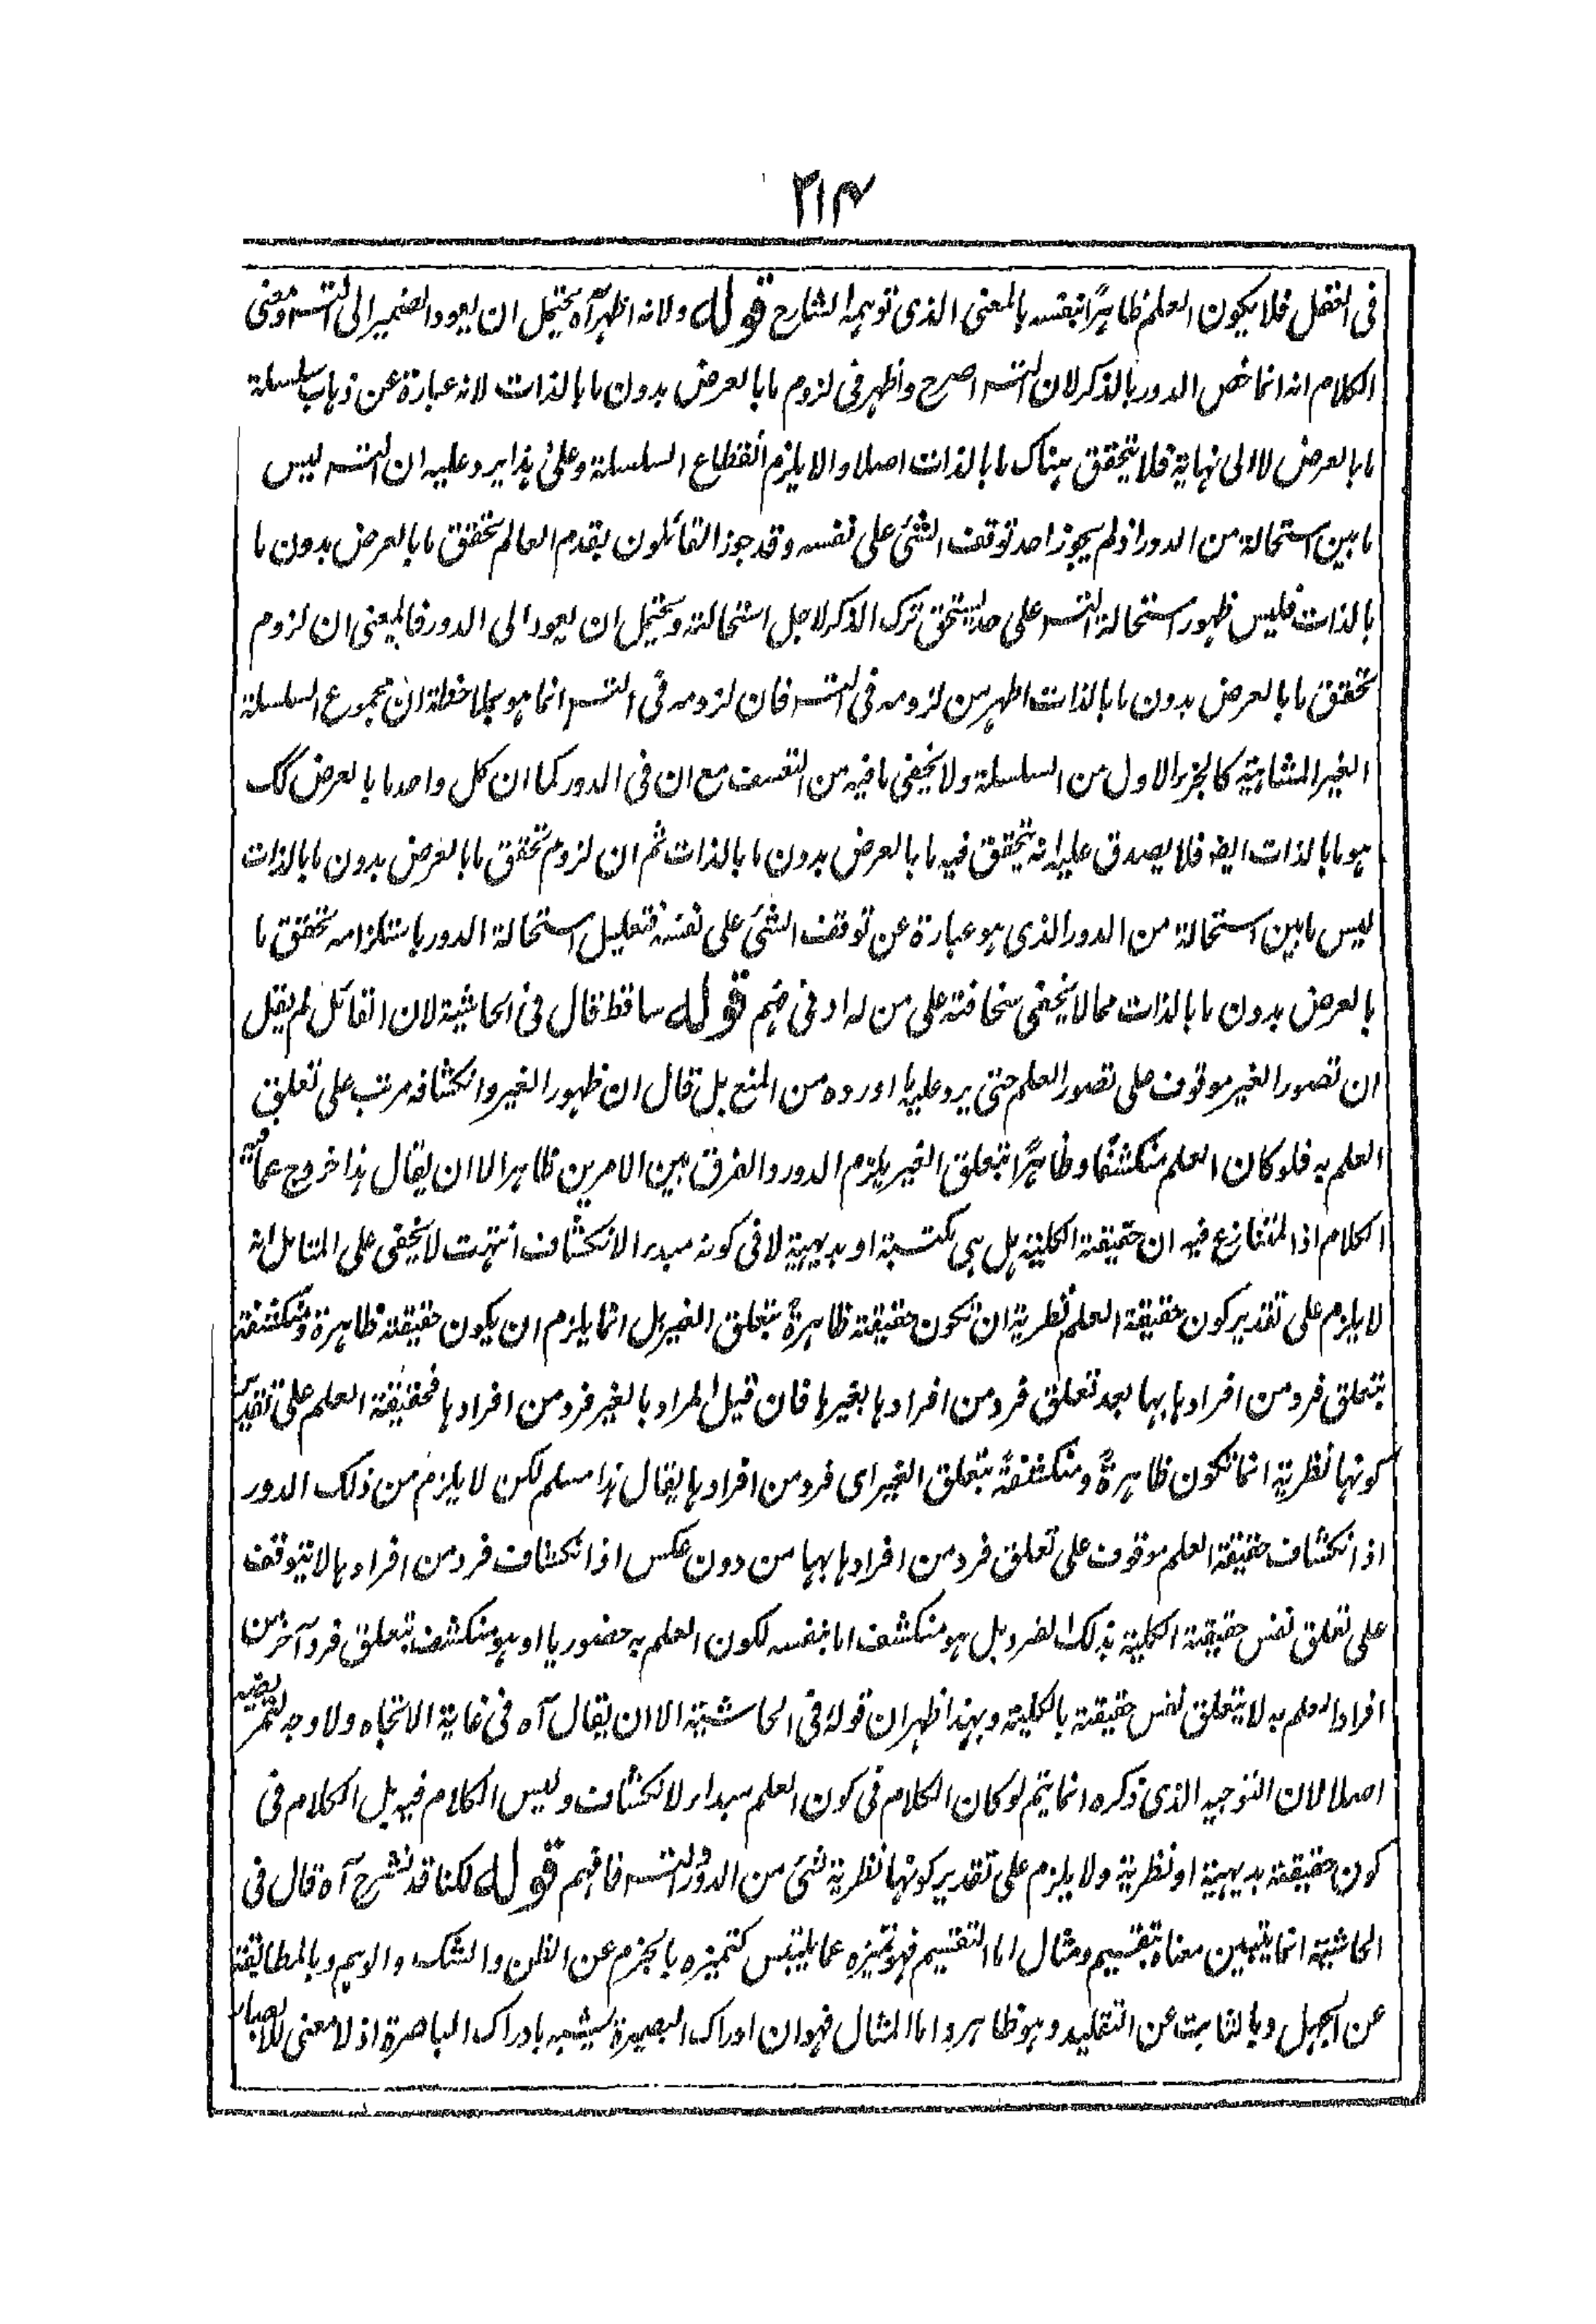 ٢١٣
فى العقل فلا يكون العلم ظاهرًا بنفسه بالمعنى الذى توهمه الشارح قوله ولانه اظهر آه يحتمل ان يعود الضمير الى التسـ ومعنى
الكلام انه انما خص الدور بالذكر لان التسـ اصرح واظهر فى لزوم ما بالعرض بدون ما بالذات لانه عبارة عن ذهاب سلسلة
ما بالعرض لا الى نهاية فلا يتحقق هناك ما بالذات اصلا والا يلزم انقطاع السلسلة وعلى هذا يرد عليه ان التسـ ليس
ما بين استحالة من الدور اذ لم يجوز احد توقف الشئ على نفسه وقد جوز القائلون بقدم العالم تحقق ما بالعرض بدون ما
بالذات فليس ظهور استحالة التسـ على حد يستحق ترك الذكر لاجل استحالته ويحتمل ان يعود الى الدور فالمعنى ان لزوم
تحقق ما بالعرض بدون ما بالذات اظهر من لزومه فى التسـ فان لزومه فى التسـ انما هو بملاحظة ان مجموع السلسلة
الغير المتناهية كالجزء الاول من السلسلة ولا يخفى ما فيه من التعسف مع ان فى الدور كما ان كل واحد ما بالعرض كك
هو ما بالذات ايضا فلا يصدق عليه انه يتحقق فيه ما بالعرض بدون ما بالذات ثم ان لزوم تحقق ما بالعرض بدون ما بالذات
ليس ما بين استحالة من الدور الذى هو عبارة عن توقف الشئ على نفسه فتعليل استحالة الدور باستلزامه تحقق ما
بالعرض بدون ما بالذات مما لا يخفى سخافته على من له ادنى فهم قوله ساقط قال فى الحاشية لان القائل لم يقل
ان تصور الغير موقوف على تصور العلم حتى يرد عليه ما اورده من المنع بل قال ان ظهور الغير وانكشافه مرتب على تعلق
العلم به فلو كان العلم منكشفًا وظاهرًا بتعلق الغير يلزم الدور والفرق بين الامرين ظاهر الا ان يقال هذا خروج عما فيه
الكلام اذ المتنازع فيه ان حقيقته الكلية هل هى مكتسبة او بديهية لا فى كونه مبدء الانكشاف انتهت لا يخفى على المتامل انه
لا يلزم على تقدير كون حقيقة العلم نظرية ان تكون حقيقته ظاهرةً بتعلق الغير بل انما يلزم ان يكون حقيقته ظاهرة ومنكشفة
بتعلق فرد من افرادها بها بعد تعلق فرد من افرادها بغيرها فان قيل المراد بالغير فرد من افرادها فحقيقة العلم على تقدير
كونها نظرية انما تكون ظاهرةً ومنكشفةً بتعلق الغير اى فرد من افرادها يقال هذا مسلم لكن لا يلزم من ذلك الدور
اذ انكشاف حقيقة العلم موقوف على تعلق فرد من افرادها بها من دون عكس اذ انكشاف فرد من افرادها لا يتوقف
على تعلق نفس حقيقته الكلية بذلك الفرد بل هو منكشف اما بنفسه لكون العلم به حضوريا او هو منكشف بتعلق فرد آخر من
افراد العلم به لا بتعلق نفس حقيقته بالكلية وبهذا ظهر ان قوله فى الحاشية الا ان يقال آه فى غاية الاتجاه ولا وجه لتمريضه
اصلا لان التوجيه الذى ذكره انما يتم لو كان الكلام فى كون العلم مبداء لانكشاف وليس الكلام فيه بل الكلام فى
كون حقيقته بديهية او نظرية ولا يلزم على تقدير كونها نظرية شئ من الدور والتسـ فافهم قوله لكنا قد نشرح آه قال فى
الحاشية انما يتبين معناه بتقسيم ومثال اما التقسيم فهو تميزه عما يلتبس كتميزه بالجزم عن الظن والشك والوهم وبالمطابقة
عن الجهل وبالثابت عن التقليد وهو ظاهر واما المثال فهو ان ادراك البصيرة يشبه بادراك الباصرة اذ لا معنى للابصار